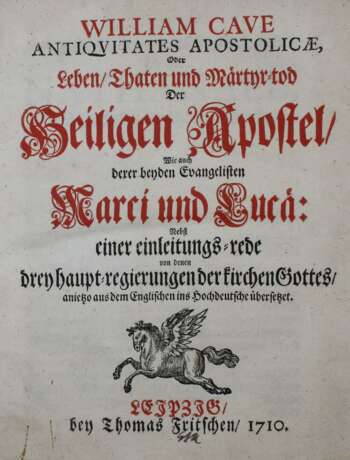 WILLIAM CAVE
ANTIQVITATES APOSTOLICÆ,
Oder
Leben/ Thaten und Märtyr-tod
Der
Heiligen Apostel/
Wie auch
derer beyden Evangelisten
Marci und Lucä:
Nebst
einer einleitungs-rede
von denen
drey haupt-regierungen der kirchen Gottes/
anietzo aus dem Englischen ins Hochdeutsche übersetzet.
LEIPZIG/
bey Thomas Fritschen/ 1710.